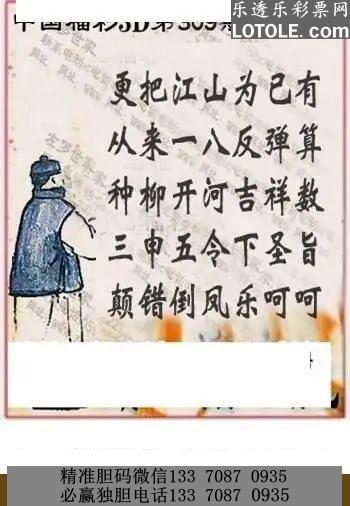 乐透乐彩票网
LOTOLE.COM
中国福彩3D第309期
更把江山为已有
从来一八反弹算
种柳开河吉祥数
三申五令下圣旨
颠错倒凤乐呵呵
精准胆码微信133 7087 0935
必赢独胆电话133 7087 0935